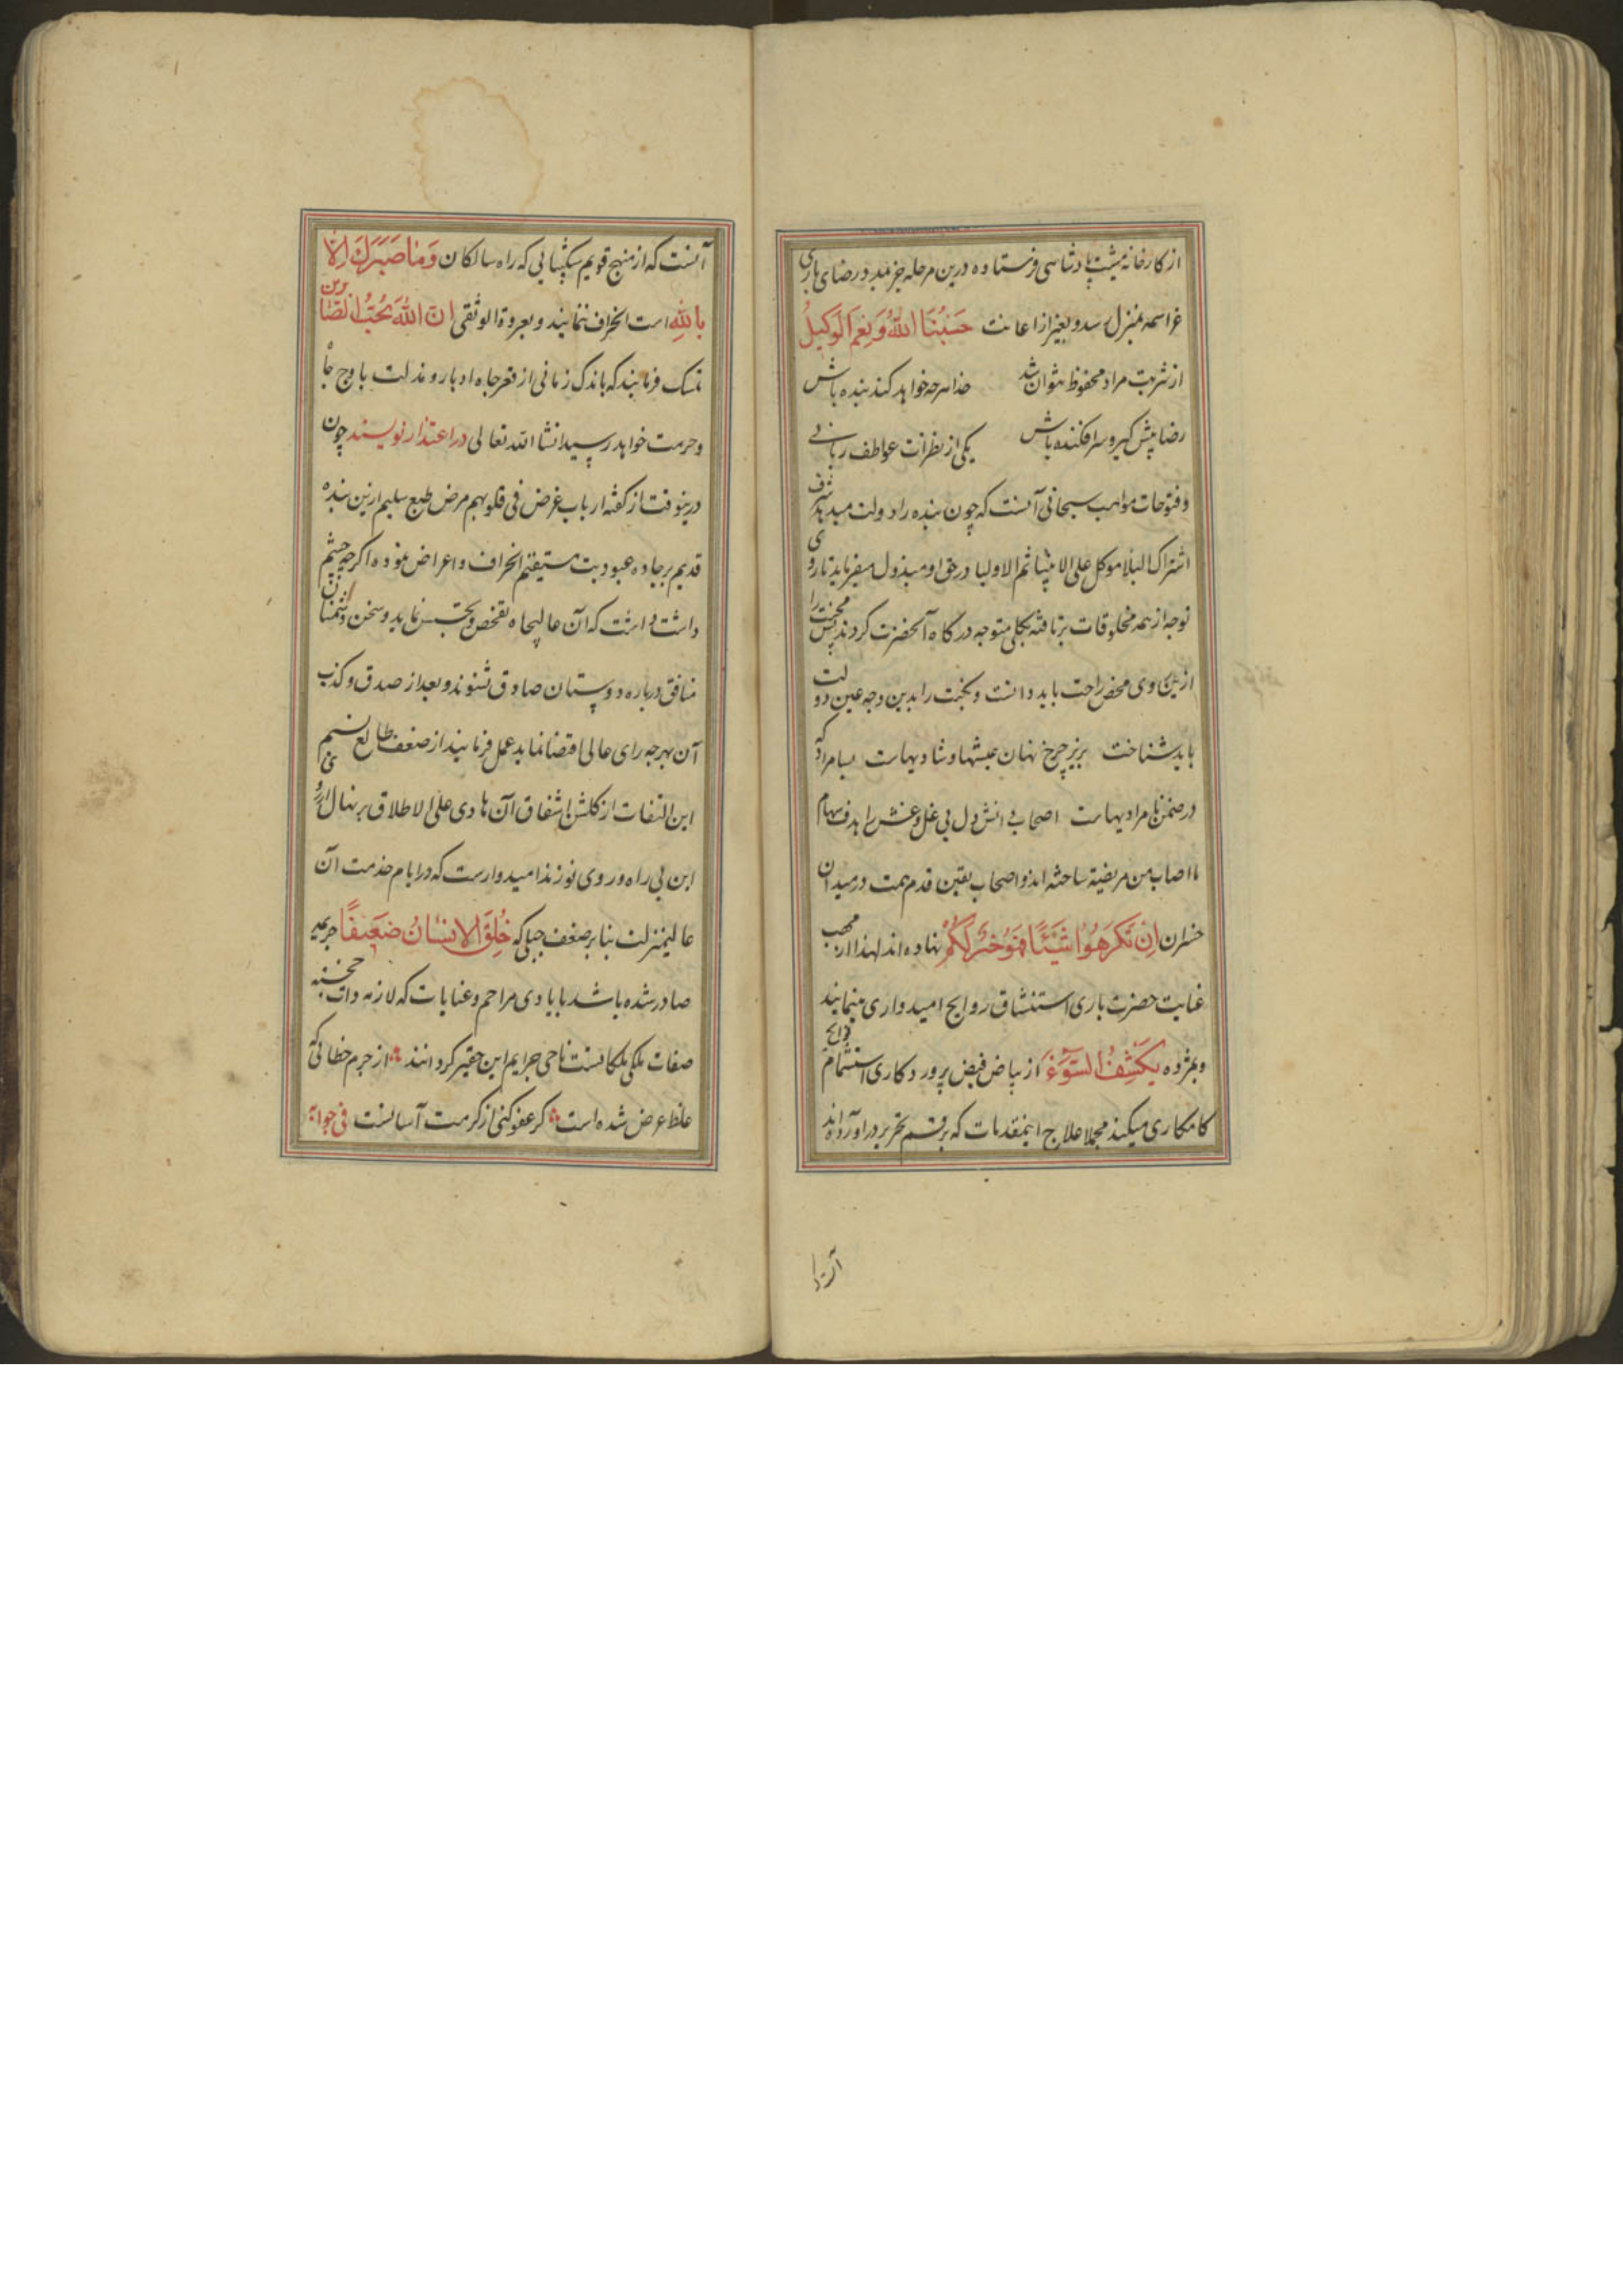 از کارخانه مشیت پادشاهی فرستاده درین مرحله جز بمدد رضای باری
عز اسمه بمنزل رسد و بغیر از اعانت حَسْبُنَا اللهُ وَنِعْمَ الْوَكِيلُ
از شربت مراد محفوظ نتوان شد خدا هرچه خواهد کند بنده باش
رضا پیش گیر و سرافکنده باش یکی از نظرات عواطف ربانی
و فتوحات مواهب سبحانی آنست که چون بنده را دولت میدهد شرف
اشتراک البلا موکل علی الانبیا ثم الاولیا در حق او مبذول میفرماید تا روی
توجه از همه مخلوقات برتافته بکلی متوجه درگاه آنحضرت کردند پس محنت را
ازین روی محض راحت باید دانست و نکبت را بدین وجه عین دولت
باید شناخت بزیر چرخ نهان عیشها و شادیهاست بسا مراد که
در ضمن نامرادیهاست اصحاب دانش دل بی غل و غش را هدف سهام
ما اصاب من مصیبة ساخته اند و اصحاب یقین قدم همت در میدان
خسران اِنْ تَكْرَهُوا شَيْئًا فَهُوَ خَيْرٌ لَكُمْ نهاده اند لهذا از مهب
عنایت حضرت باری استنشاق روایح امیدواری مینمایند
و بمژده يَكْشِفُ السُّوءَ از ریاض فیض پروردکاری استشمام فوایح
کامکاری میکنند مجملا علاج اینمقدمات که برقم تحریر در آورده اند
آنست
آنست که از منهج قویم شکیبائی که راه سالکان وَمَا صَبْرُكَ اِلَّا
بِاللهِ است انحراف ننمایند و بعروة الوثقی ان اللهَ يُحِبُّ الصَّابرین
تمسک فرمایند که باندک زمانی از قعر چاه ادبار و مذلت باوج جاه
و حرمت خواهد رسید انشا الله تعالی در اعتذار نویسند چون
درینوقت از کفتار ارباب غرض فی قلوبهم مرض طبع سلیم ازین بنده
قدیم بر جاده عبودیت مستقیم انحراف و اعراض نموده اکرچه چشم
داشت داشت که آن عالیجاه تفحص و تجسس نماید و سخن دشمنان
منافق درباره دوستان صادق نشنوند و بعد از صدق و کذب
آن بهرچه رای عالی اقتضا نماید عمل فرمایند از ضعف طالع نسیم
این التفات از کلشن اشفاق آن هادی علی الاطلاق بر نهال آرزوی
این بی راه و روی نوزند امیدوارست که در ایام خدمت آن
عالیمنزلت بنا بر ضعف جبلی که خُلِقَ الْاِنْسَانُ ضَعِيفًا جریمه
صادر شده باشد بایادی مراحم و عنایات که لازمه ذات خجسته
صفات ملکی ملکانست ماحی جرایم این حقیر کردانند از جرم خطائی که
غلط عرض شده است کر عفو کنی از کرمت آسانست فی جوابه